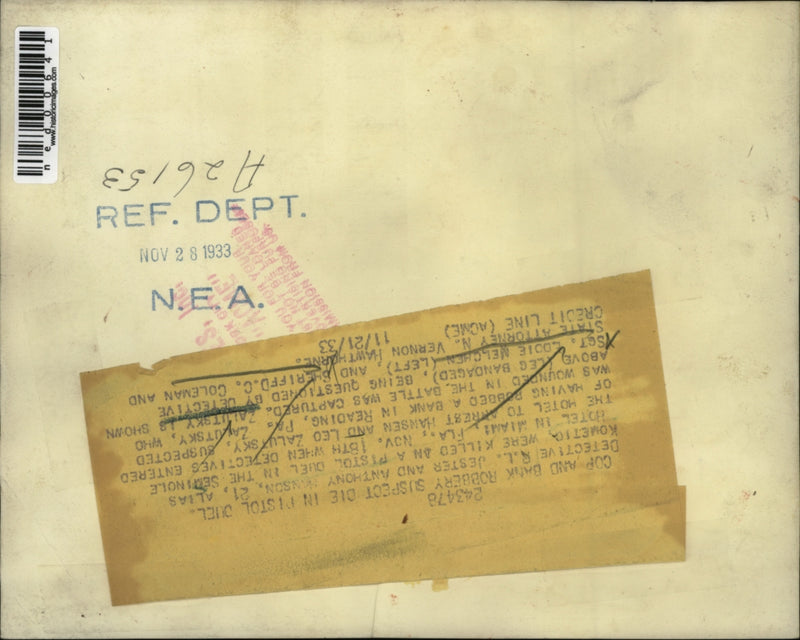 ned00641
www.historicimages.com
A26153
REF. DEPT.
NOV 28 1933
N.E.A.
243478
COP AND BANK ROBBERY SUSPECT DIE IN PISTOL DUEL.
DETECTIVE R.L. JESTER AND ANTHONY HANSON, 21, ALIAS
KOMETIC, WERE KILLED IN A PISTOL DUEL IN THE SEMINOLE
HOTEL IN MIAMI, FLA., NOV. 18TH, WHEN DETECTIVES ENTERED
THE HOTEL TO ARREST HANSEN AND LEO ZALUTSKY, SUSPECTED
OF HAVING ROBBED A BANK IN READING, PA. ZALUTSKY, WHO
WAS WOUNDED IN THE BATTLE WAS CAPTURED. ZALUTSKY, SHOWN
ABOVE (LEG BANDAGED), BEING QUESTIONED BY DETECTIVE
SGT. EDDIE MELCHEN (LEFT), AND SHERIFF D.C. COLEMAN AND
STATE ATTORNEY N. VERNON HAWTHORNE.
CREDIT LINE (ACME) 11/21/33